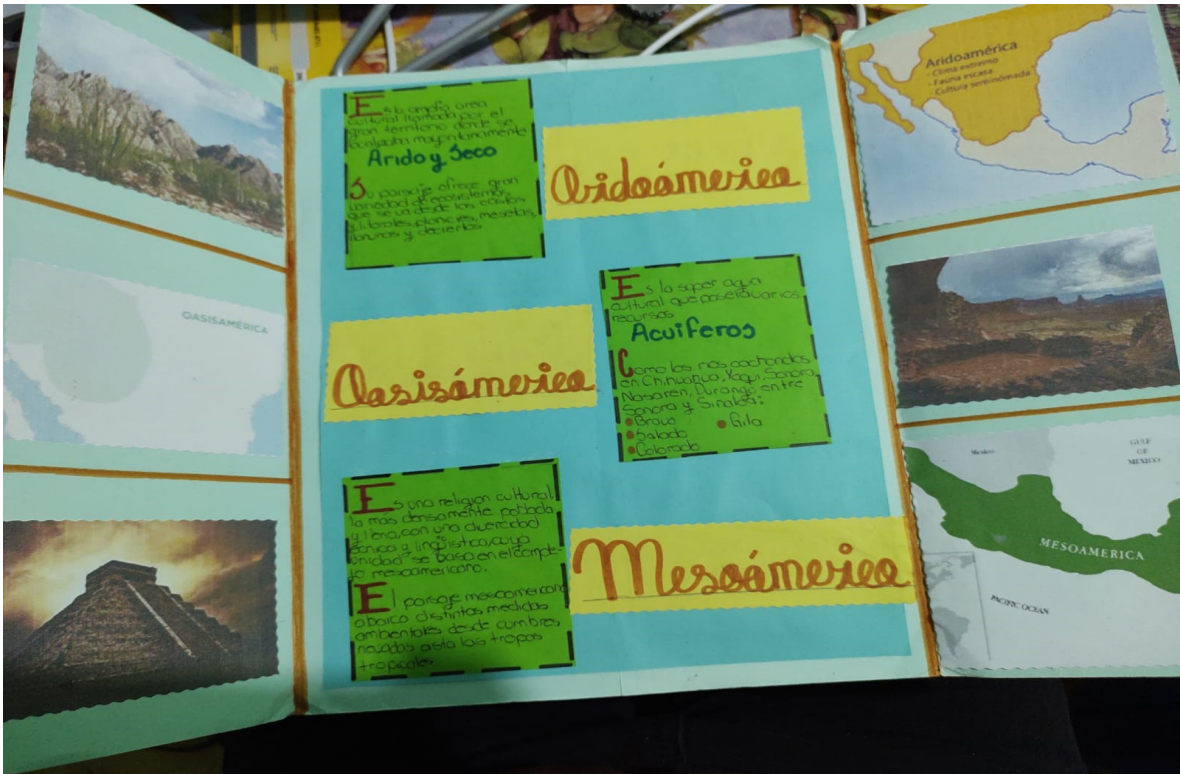 Es la amplia area
cultural llamada por el
gran territorio donde se
localizaba mayoritariamente
Arido y Seco
Su paisaje ofrece gran
variedad de ecosistemas
que se va desde las costas
y litorales, planicies, mesetas,
y decierlos
Aridoámerica
Aridoamérica
- Clima extremo
- Fauna escasa
- Cultura seminómada
OASISAMÉRICA
Oasisámerica
Es la super agua
cultural que posera varios
recursos
Acuiferos
Como los rios
en Chihuahua, Yaqui, Sonora,
Nasaren, Durango entre
Sonora y Sinaloa:
• Bravo • Gila
• Salado
• Colorado
Es una religion cultural,
la mas densamente poblada
y llena, con una diversidad
etnica y lingüistica, cuya
unidad se basa en el comple-
jo mesoamericano.
El paisaje mesoamericano
abarca distintas medidas
ambientales desde cumbres
nevadas asta las tropas
tropicales
Mesoámerica
Mexico
GULF
OF
MEXICO
MESOAMERICA
PACIFIC OCEAN